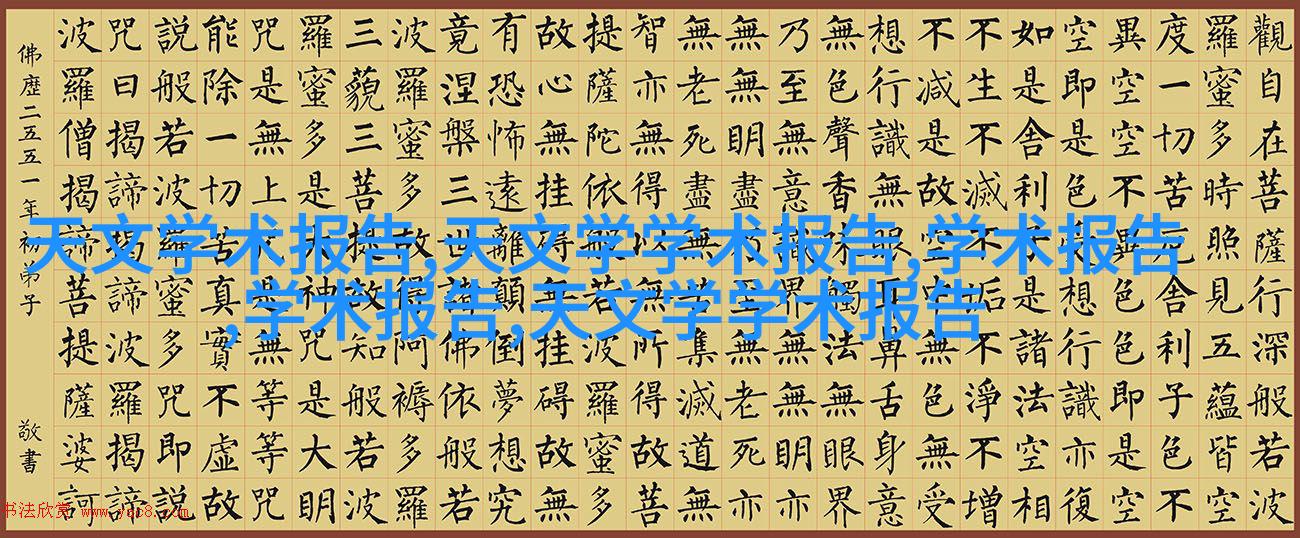 觀自在菩薩行深般若波
羅蜜多時照見五蘊皆空
度一切苦厄舍利子色不
異空空不異色色即是空
空即是色受想行識亦復
如是舍利子是諸法空相
不生不滅不垢不淨不增
不減是故空中無色無受
想行識無眼耳鼻舌身意
無色聲香味觸法無眼界
乃至無意識界無無明亦
無無明盡乃至無老死亦
無老死盡無苦集滅道無
智亦無得以無所得故菩
提薩陀依般若波羅蜜多
故心無挂礙無挂礙故無
有恐怖遠離顛倒夢想究
竟涅槃三世諸佛依般若
波羅蜜多故得阿褥多羅
三藐三菩提故知般若波
羅蜜多是大神咒是大明
咒是無上咒是無等等咒
能除一切苦真實不虛故
說般若波羅蜜多咒即說
咒曰揭諦揭諦波羅揭諦
波羅僧揭諦菩提薩婆訶
佛歷二五五一年初弟子 敬書
天文学术报告,天文学学术报告,学术报告
,学术报告,天文学学术报告
书法欣赏 www.yac8.com